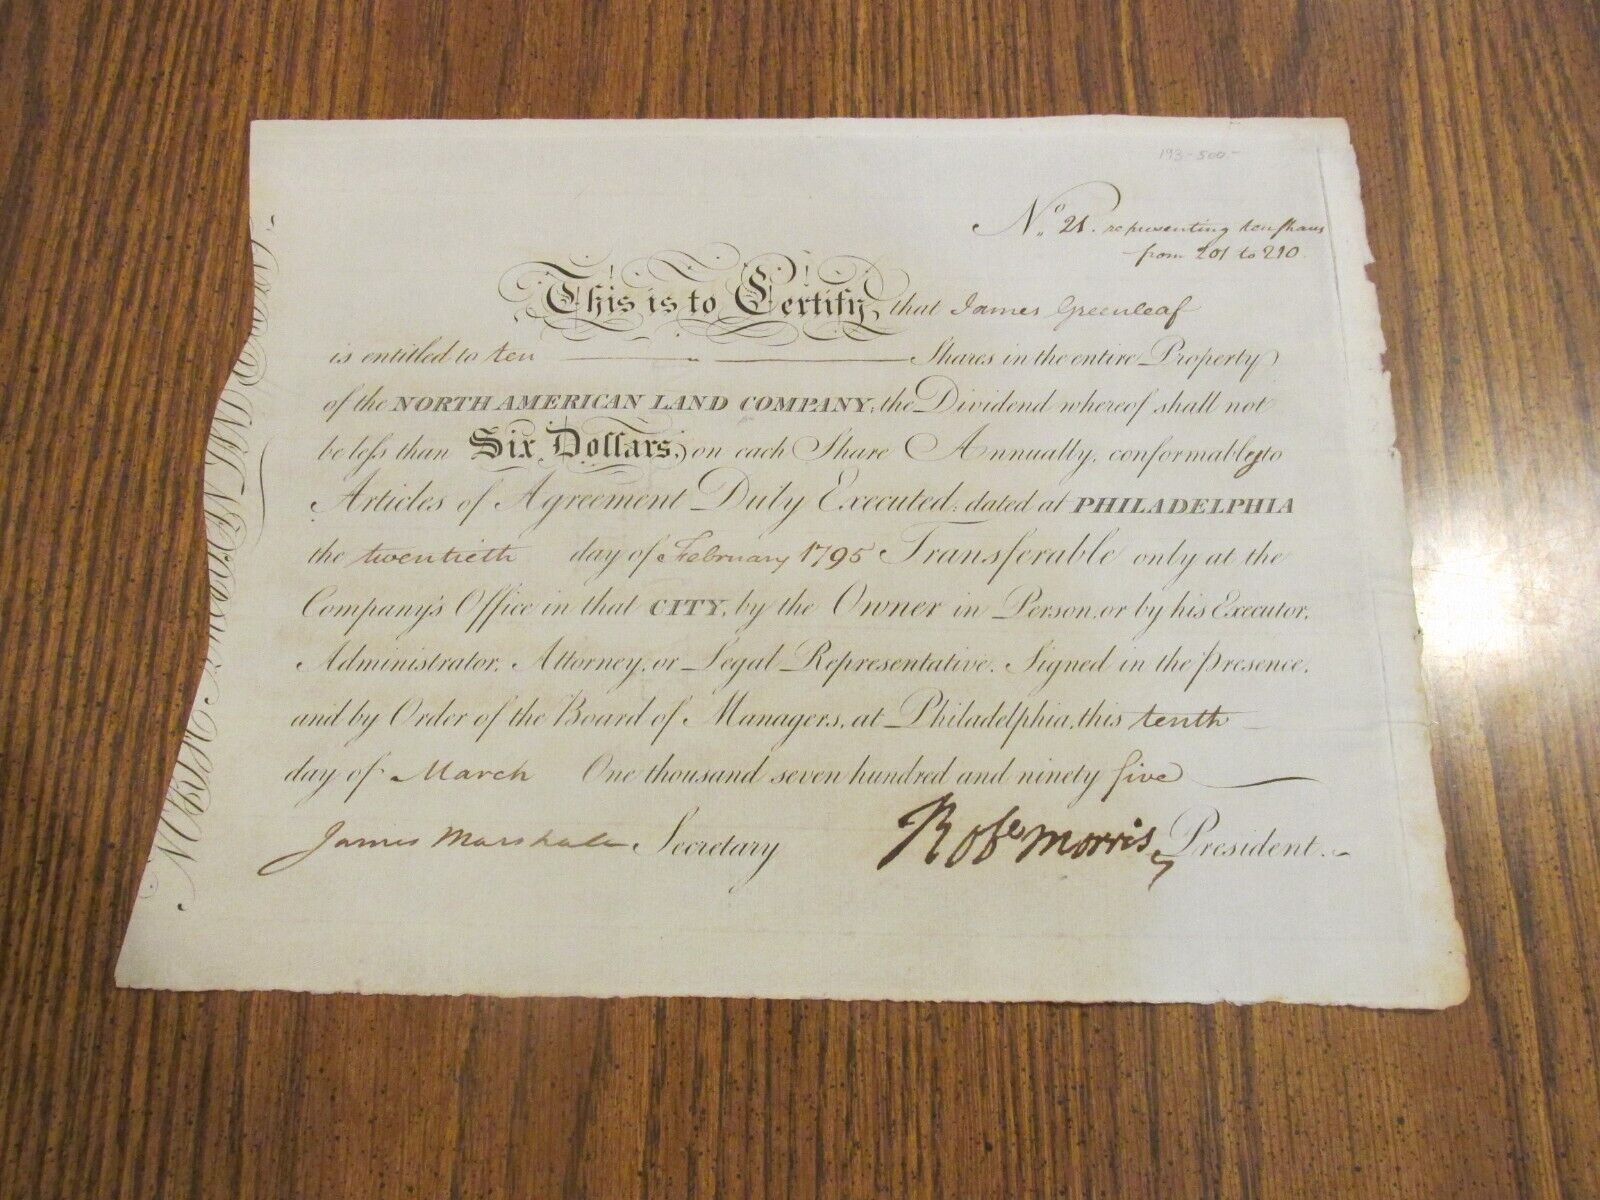 193-500-
No. 21. representing ten shares
from 201 to 210.
This is to Certify, that James Greenleaf
is entitled to ten Shares in the entire Property
of the NORTH AMERICAN LAND COMPANY; the Dividend whereof shall not
be less than Six Dollars, on each Share Annually, conformably to
Articles of Agreement Duly Executed; dated at PHILADELPHIA
the twentieth day of February 1795 Transferable only at the
Company's Office in that CITY, by the Owner in Person, or by his Executor,
Administrator, Attorney, or Legal Representative. Signed in the presence,
and by Order of the Board of Managers, at Philadelphia, this tenth
day of March One thousand seven hundred and ninety five
James Marshall Secretary Robt Morris, President.